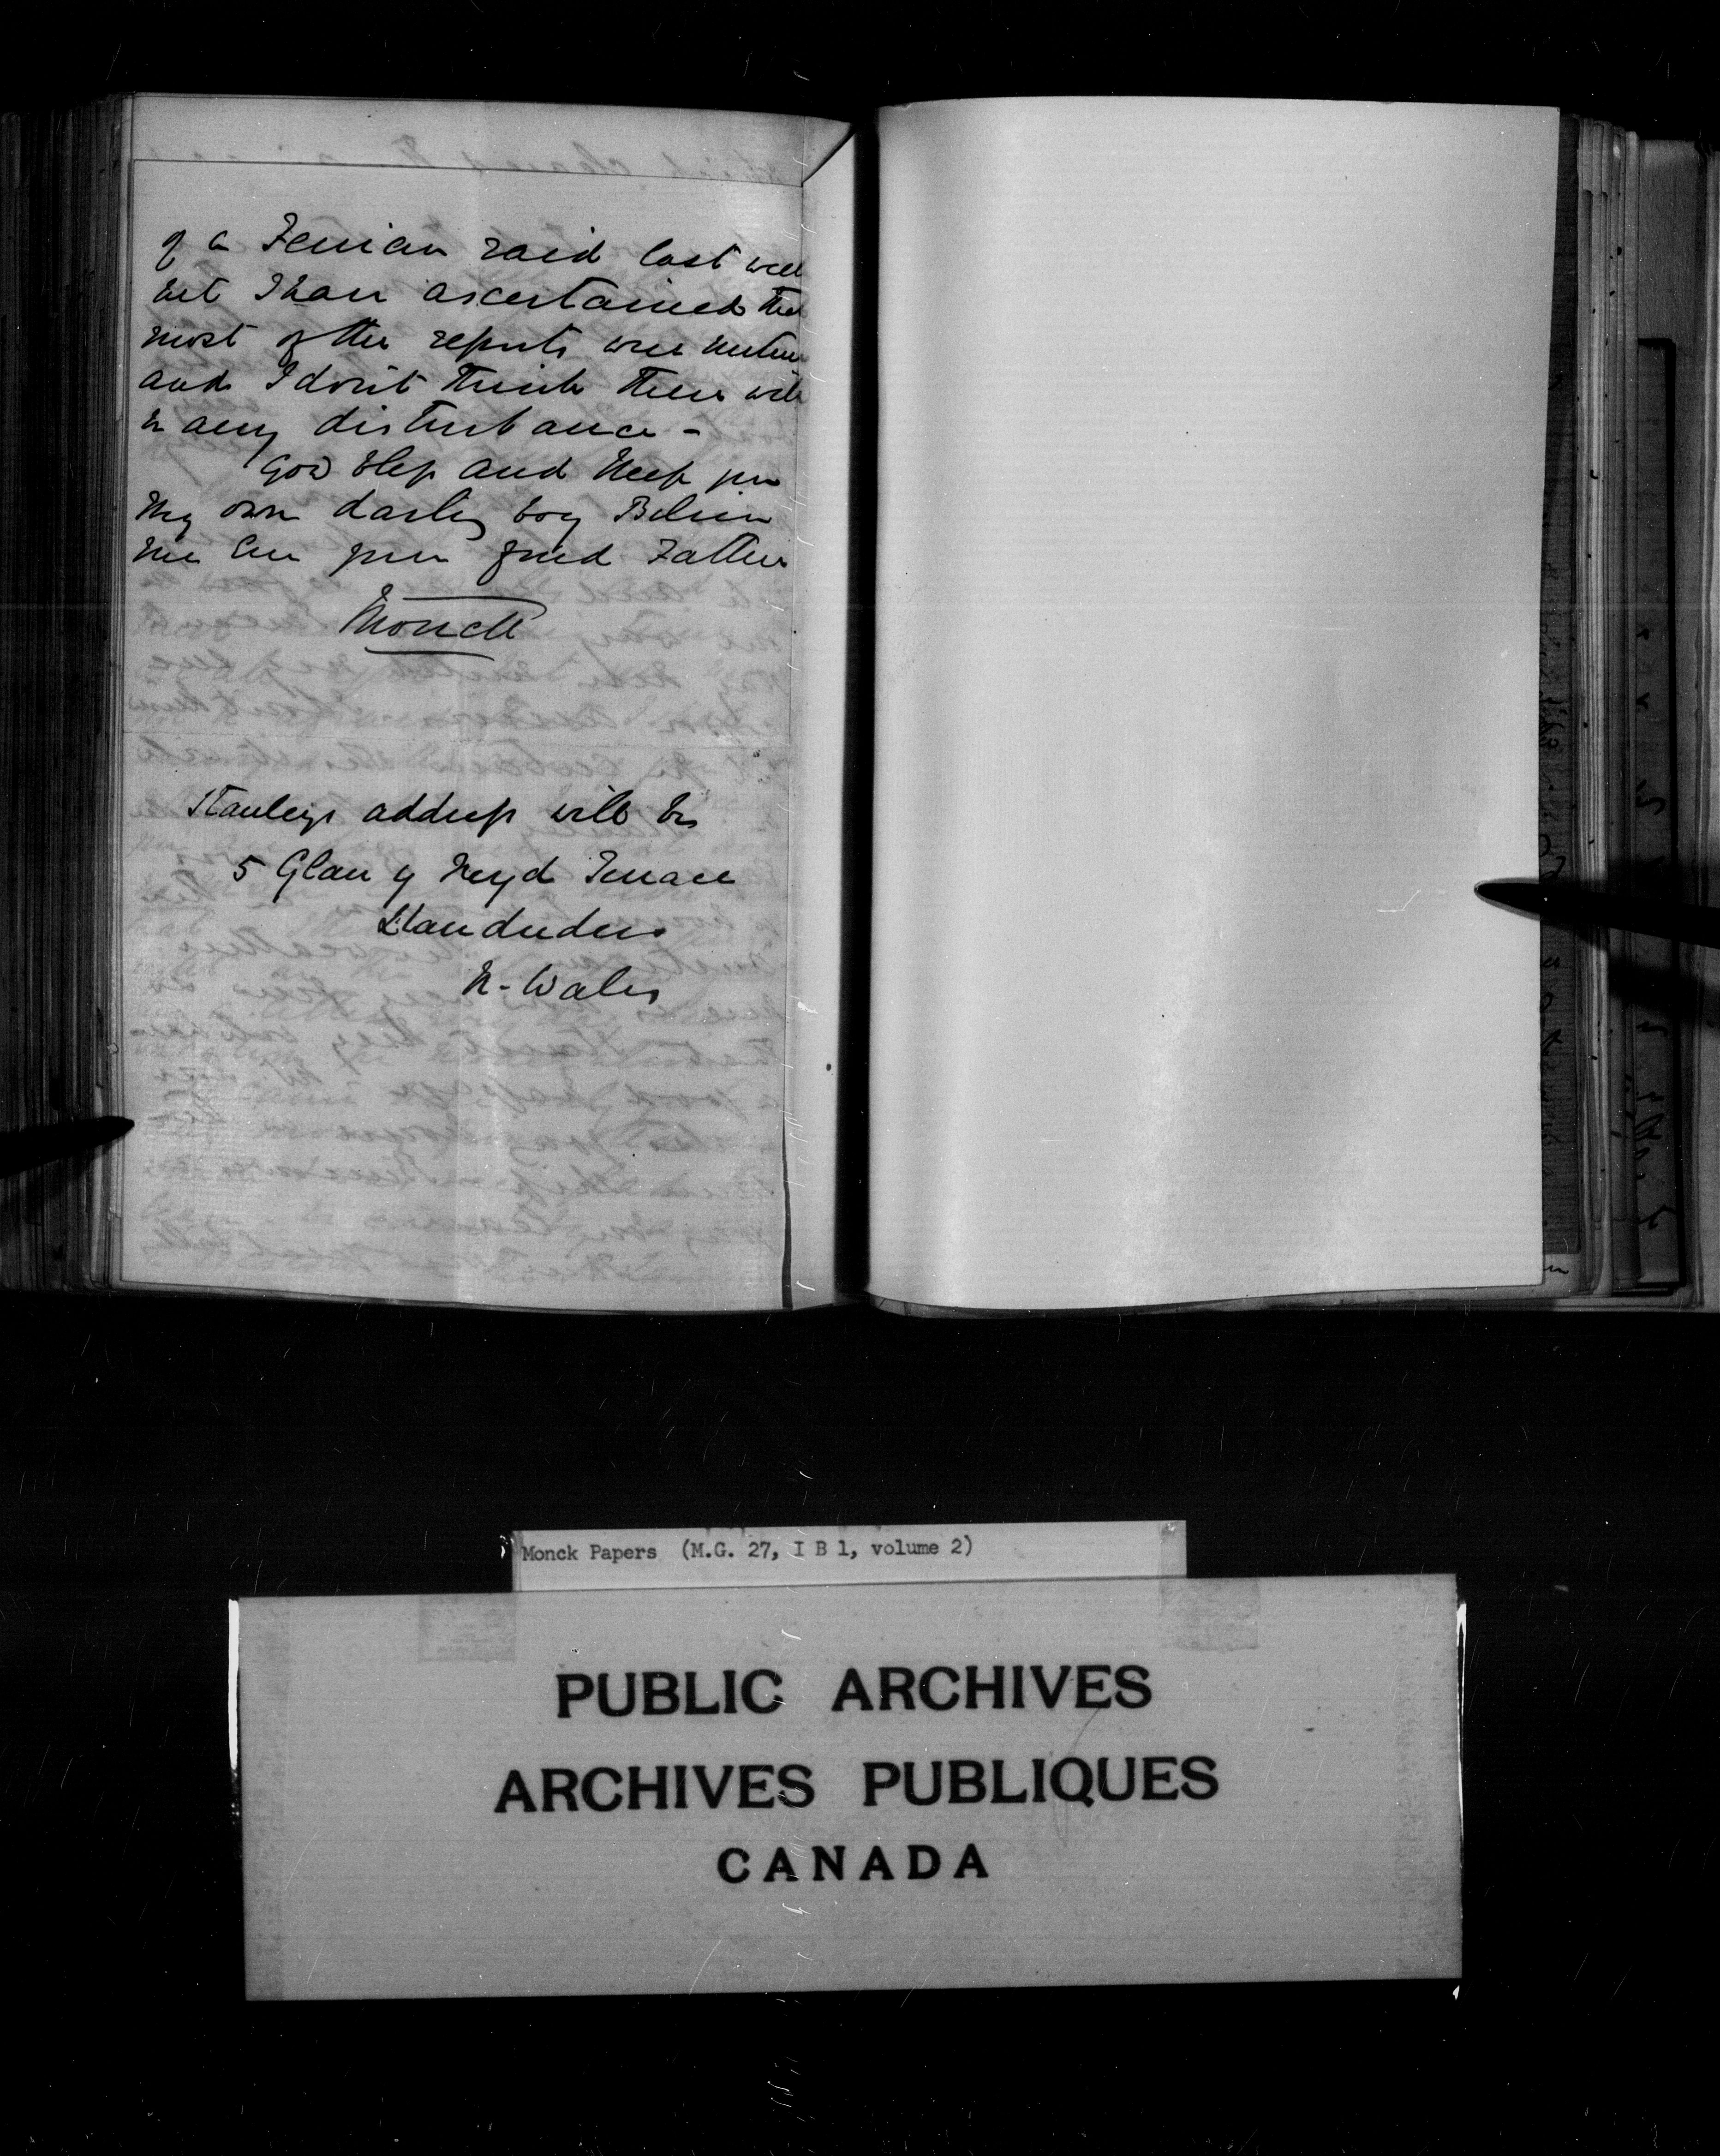 of a Fenian raid last week
but I have ascertained that
most of the reports were untrue
and I don't think there will
be any disturbance -
God bless and keep you
My own darling boy Believe
me ever your fond Father
Monck
Stanleys address will be
5 Glan y Heyd Terrace
Llandudno
N. Wales
Monck Papers (M.G. 27, I B 1, volume 2)
PUBLIC ARCHIVES
ARCHIVES PUBLIQUES
CANADA